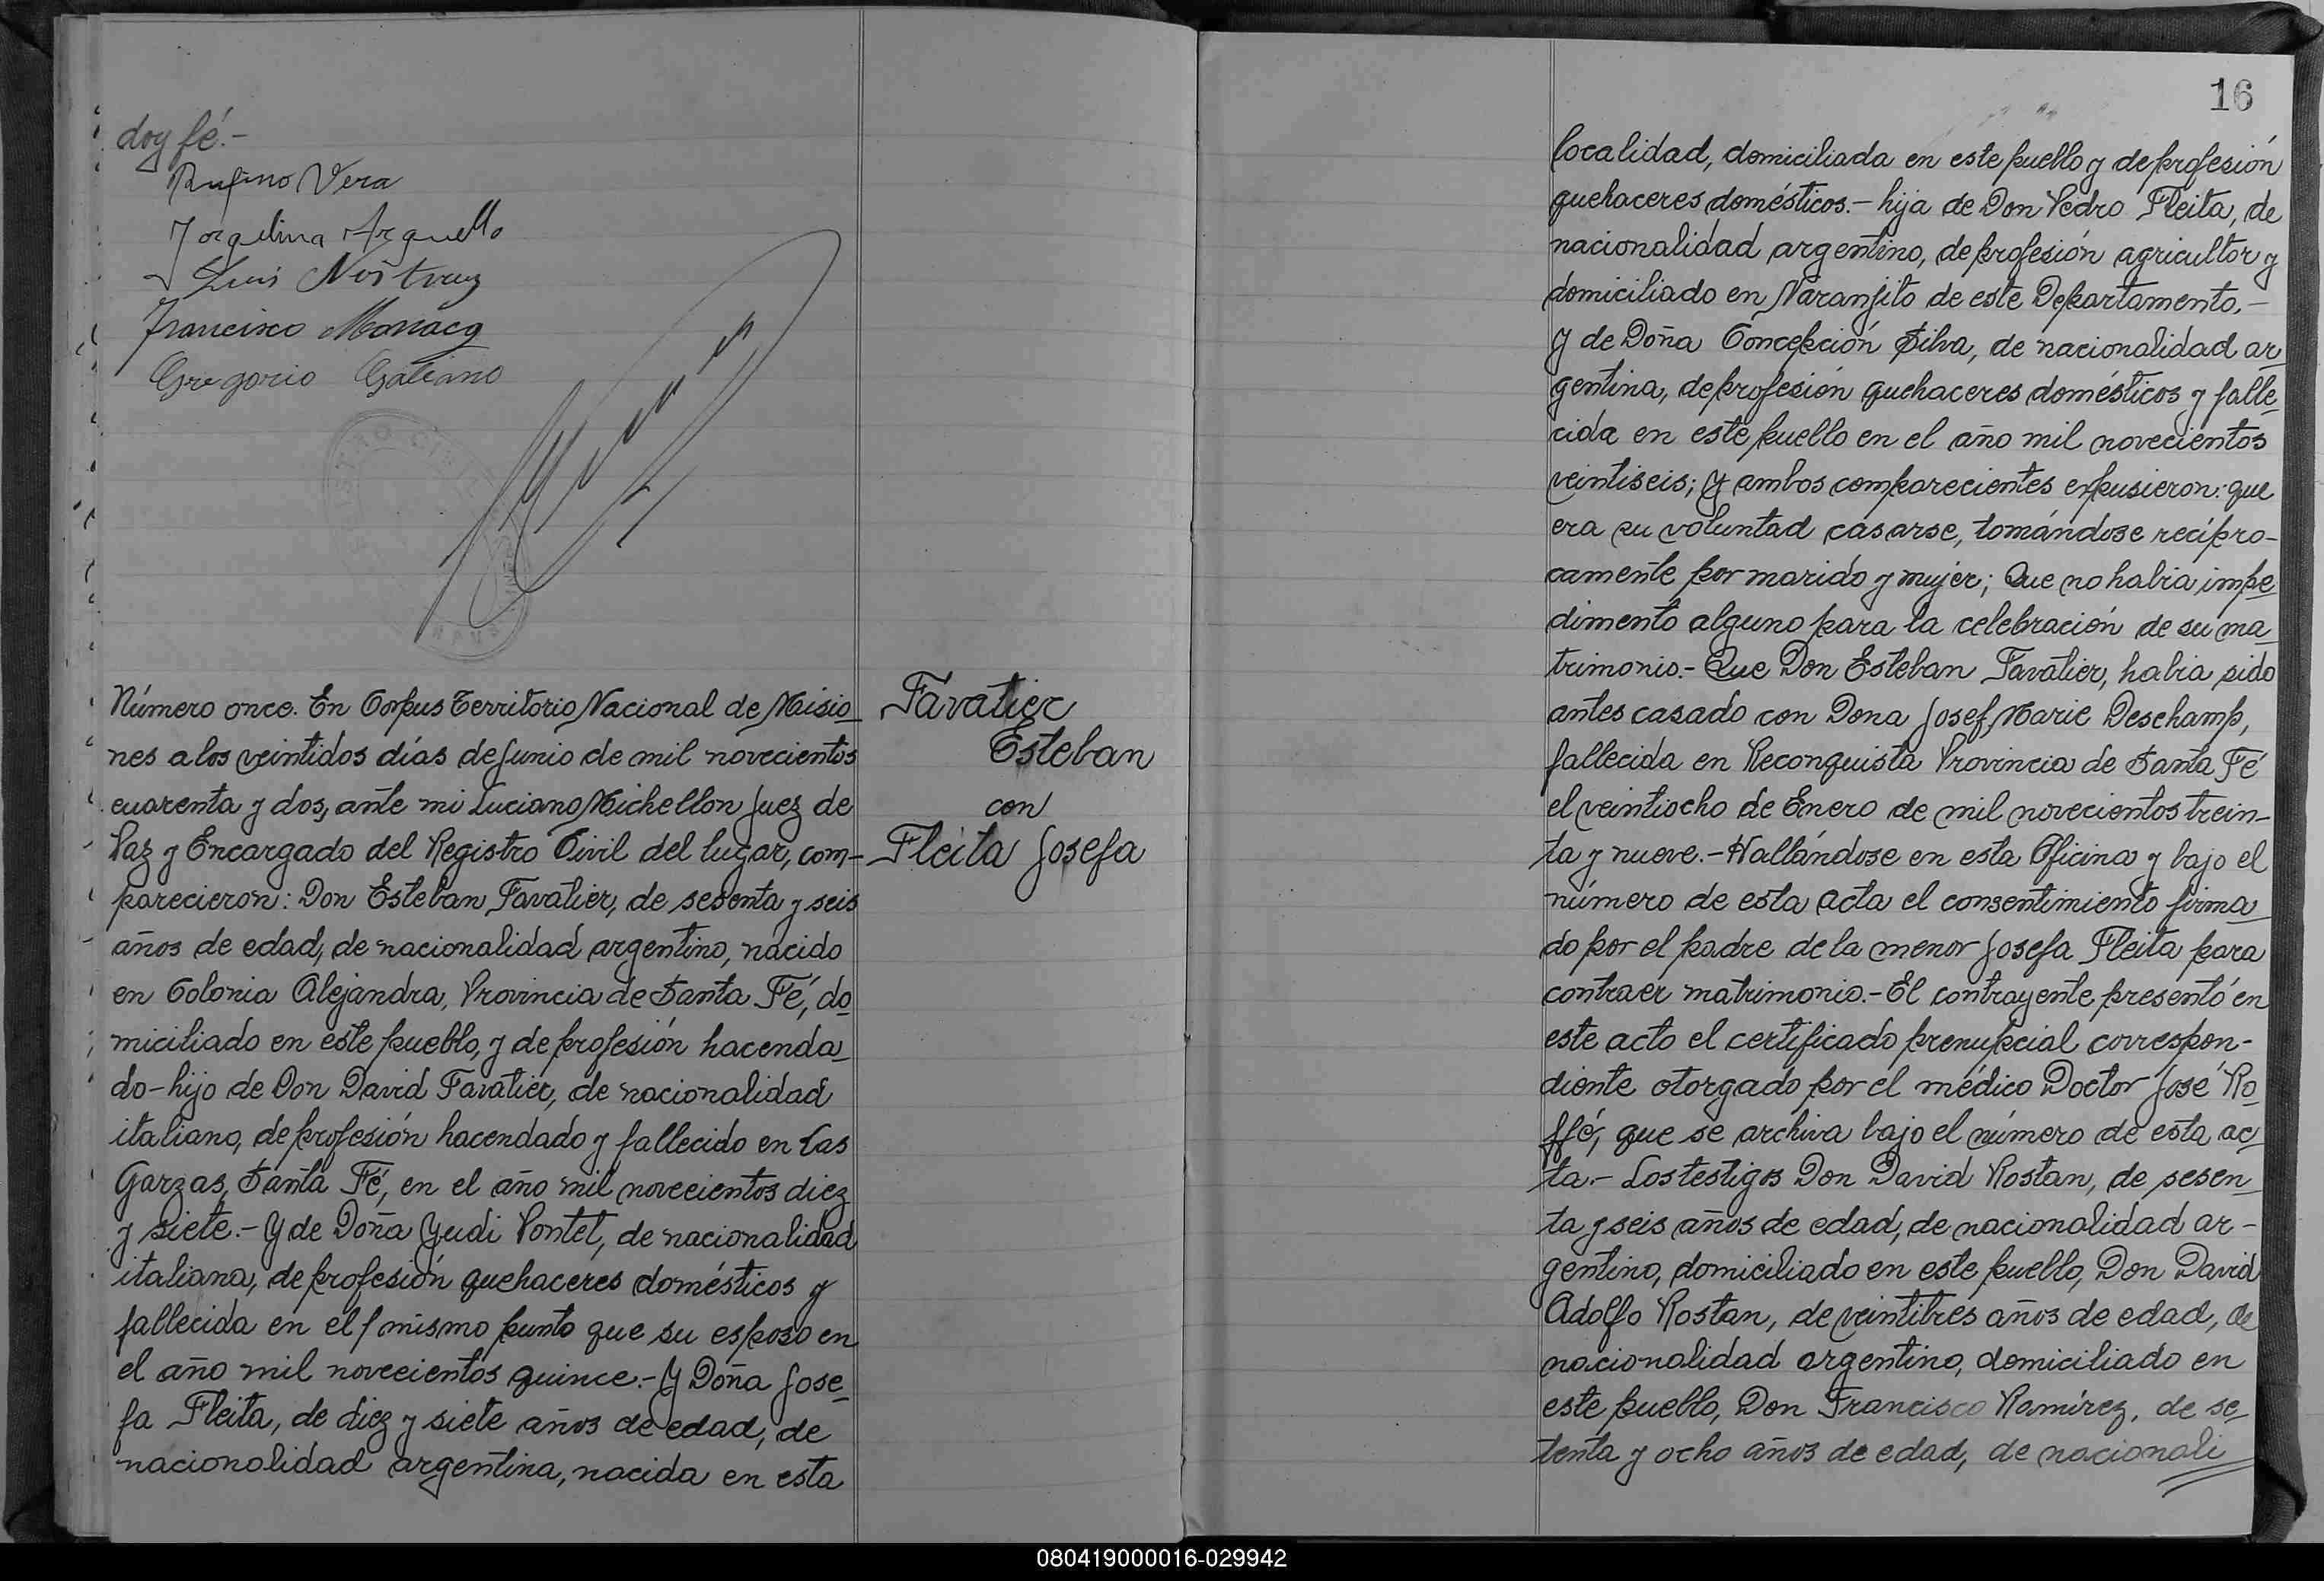 doy fé.-
Rufino Vera
Jorgelina Arguello
Luis
Francisco
Gregorio Galeano
Número once. En Corpus Territorio Nacional de Misio
nes a los veintidos días de Junio de mil novecientos
cuarenta y dos, ante mi Luciano Michellon Juez de
Paz y Encargado del Registro Civil del lugar, com-
parecieron: Don Esteban Favatier, de sesenta y seis
años de edad, de nacionalidad argentino, nacido
en Colonia Alejandra, Provincia de Santa Fé, do
miciliado en este pueblo, y de profesión hacenda
do-hijo de Don David Favatier, de nacionalidad
italiano, de profesión hacendado y fallecido en Las
Garzas, Santa Fé, en el año mil novecientos diez
y siete.- Y de Doña Yudi Pontet, de nacionalidad
italiana, de profesión quehaceres domésticos y
fallecida en el mismo punto que su esposo en
el año mil novecientos quince.- Y Doña Jose
fa Fleita, de diez y siete años de edad, de
nacionalidad argentina, nacida en esta
Favatier
Esteban
con
Fleita Josefa
16
localidad, domiciliada en este pueblo y de profesión
quehaceres domésticos.- hija de Don Pedro Fleita, de
nacionalidad argentino, de profesión agricultor y
domiciliado en Naranjito de este Departamento.-
Y de Doña Concepción Silva, de nacionalidad ar
gentina, de profesión quehaceres domésticos y falle
cida en este pueblo en el año mil novecientos
veintiseis; Y ambos comparecientes expusieron: que
era su voluntad casarse, tomándose recípro-
camente por marido y mujer; Que no habia impe
dimento alguno para la celebración de su ma
trimonio.- Que Don Esteban Favatier, habia sido
antes casado con Dona Josef Marie Deschamp,
fallecida en Reconquista Provincia de Santa Fé
el veintiocho de Enero de mil novecientos trein-
ta y nueve.- Hallándose en esta Oficina y bajo el
número de esta acta el consentimiento firma
do por el padre de la menor Josefa Fleita para
contraer matrimonio.- El contrayente presentó en
este acto el certificado prenupcial correspon-
diente otorgado por el médico Doctor José Ro
ffé, que se archiva bajo el número de esta ac
ta.- Los testigos Don David Rostan, de sesen
ta y seis años de edad, de nacionalidad ar-
gentino, domiciliado en este pueblo, Don David
Adolfo Rostan, de veintitres años de edad, de
nacionalidad argentino, domiciliado en
este pueblo, Don Francisco Ramírez, de se
tenta y ocho años de edad, de nacionali
080419000016-029942